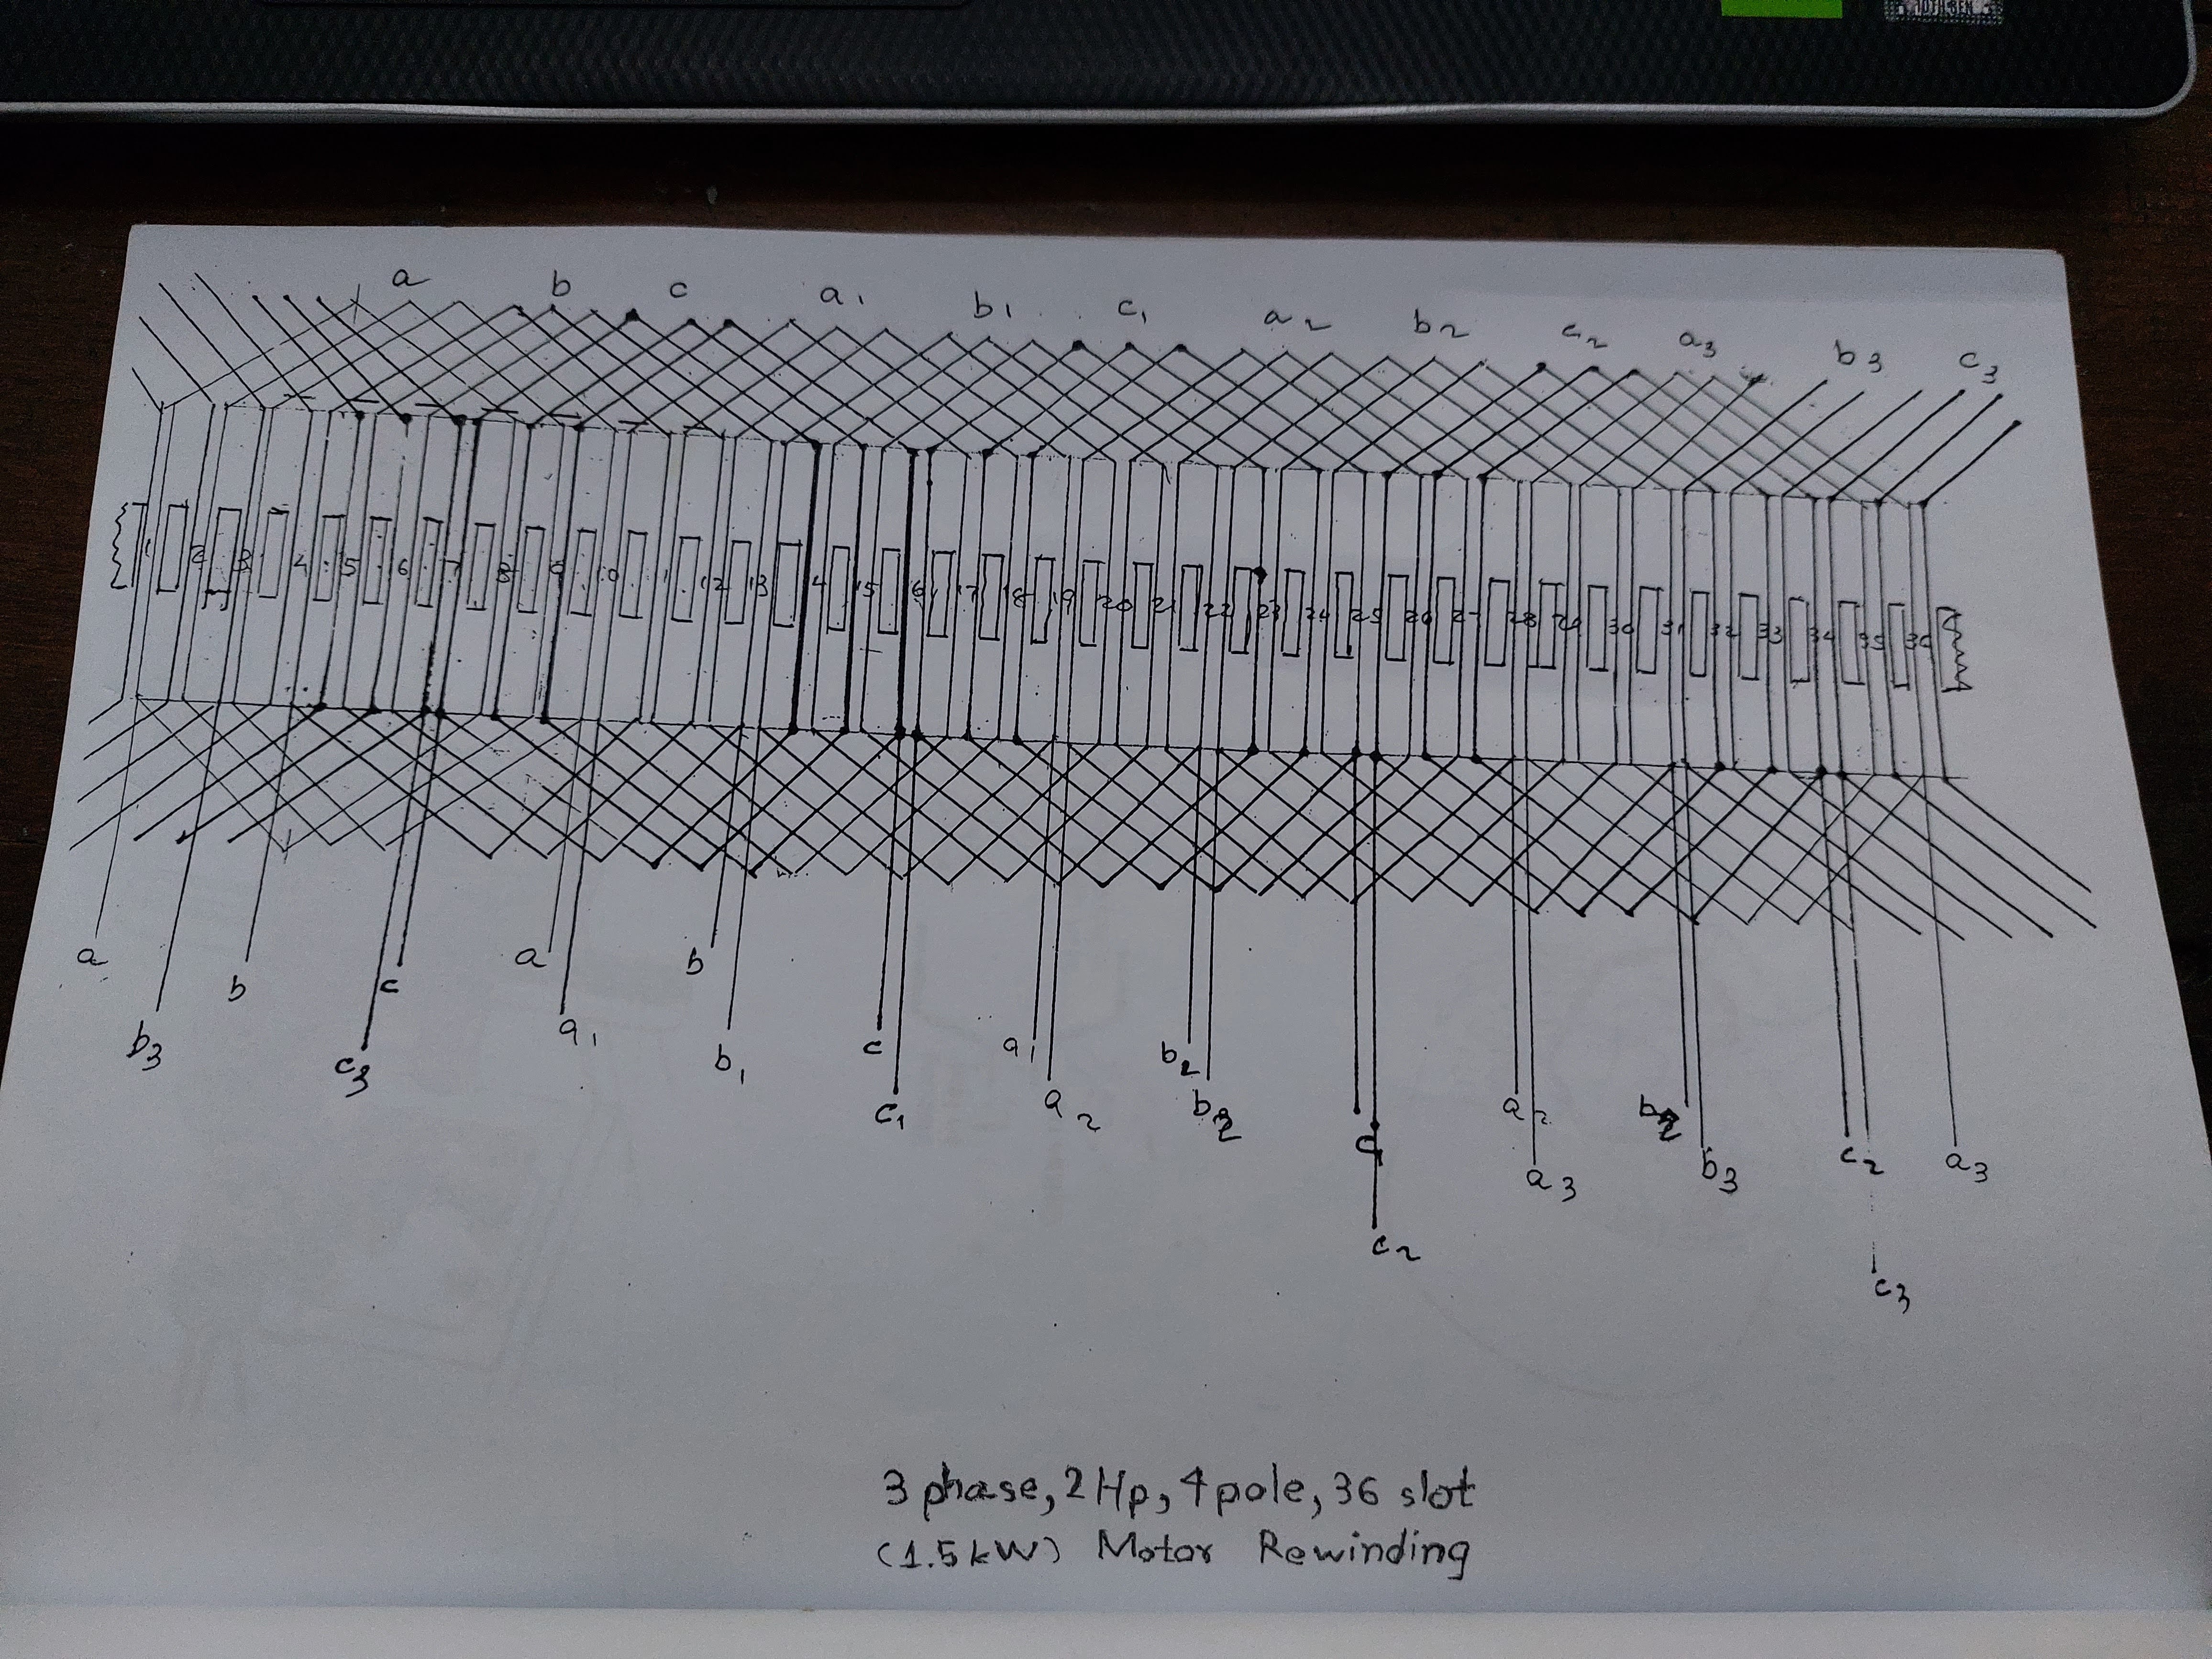 a b c a1 b1 c1 a2 b2 c2 a3 b3 c3
1 2 3 4 5 6 7 8 9 10 1 12 13 4 15 16 17 18 19 20 21 22 23 24 25 26 2 28 29 30 31 32 33 34 35 36
a b3 b c3 c a a1 b b1 c c1 a1 a2 b2 c2 a2 a3 b3 c2 c3 a3
3 phase, 2 Hp, 4 pole, 36 slot
(1.5 kW) Motor Rewinding